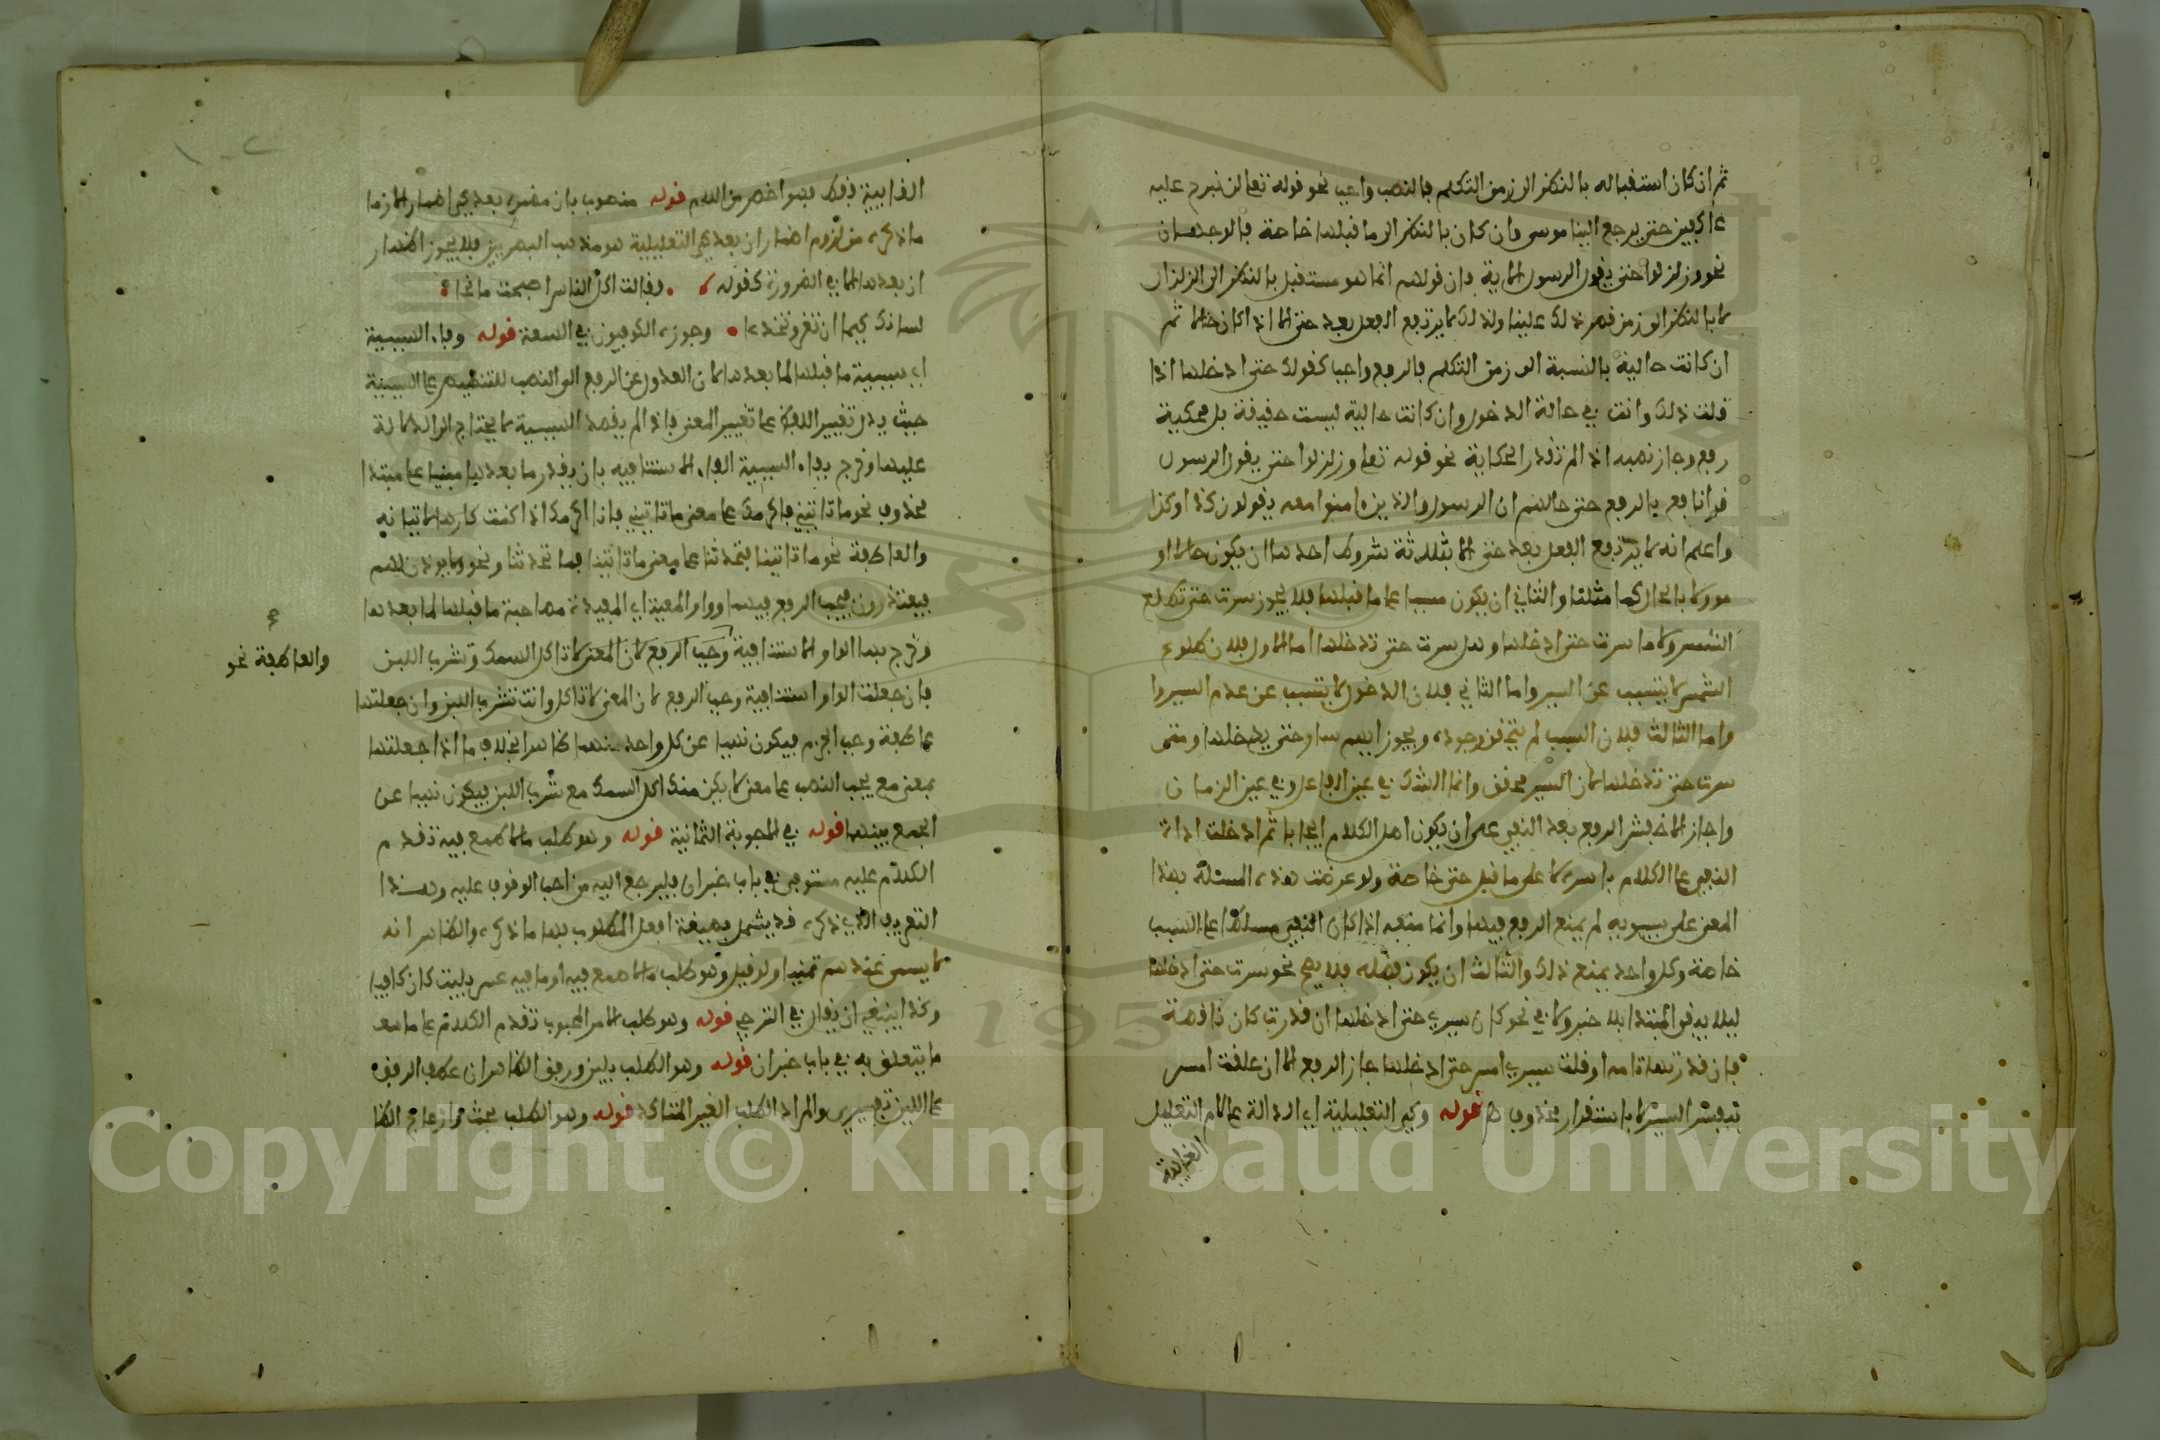 ثم ان كان استقباله بالنظر الى زمن التكلم فالنصب واجب نحو قوله تعالى لن نبرح عليه
عاكفين حتى يرجع الينا موسى وان كان بالنظر الى ما قبلها خاصة فالوجهان
نحو وزلزلوا حتى يقول الرسول الاية فان قولهم انما هو مستقبل بالنظر الى الزلزال
لا بالنظر الى زمن قص ذلك علينا وكذلك لا يرتفع الفعل بعد حتى الا اذا كان حالا ثم
ان كانت حالية بالنسبة الى زمن التكلم فالرفع واجب كقولك حتى ادخلها اذا
قلت ذلك وانت في حالة الدخول وان كانت حالية ليست حقيقة بل محكية
رفع وجاز نصبه اذا لم تقدر الحكاية نحو قوله تعالى وزلزلوا حتى يقول الرسول
قرا نافع بالرفع حتى حالهم ان الرسول والذين ءامنوا معه يقولون كذا وكذا
واعلم انه لا يرتفع الفعل بعد حتى الا بثلاثة شروط احدها ان يكون حالا او
مورلا بالحال كما مثلنا والثاني ان يكون مسببا عما قبلها فلا يجوز سرت حتى تطلع
الشمس ولا ما سرت حتى ادخلها وهل سرت حتى تدخلها اما الاول فلان طلوع
الشمس لا يتسبب عن السير واما الثاني فلان الدخول لا يتسبب عن عدم السير وا
واما الثالث فلان السبب لم يتحقق وجوده ويجوز ايهم سار حتى يدخلها ومتى
سرت حتى تدخلها لان السير محقق وانما الشك في عين الفاعل وفي عين الزمان
واجاز الاخفش الرفع بعد النفي على ان يكون اصل الكلام ايجابا ثم ادخلت اداة
النفي على الكلام باسره لا على ما قبل حتى خاصة ولو عرضت هذه المسئلة بهذا
المعنى على سيبويه لم يمنع الرفع فيها وانما منعه اذا كان النفي مسلطا على السبب
خاصة وكل واحد يمنع ذلك والثالث ان يكون فضلة فلا يصح نحو سرت حتى ادخلها
ليلا يبقى المبتدا بلا خبر ولا في نحو كان سيري حتى ادخلها ان قدرت كان ناقصة
فان قدرتها تامة او قلت سيري امس حتى ادخلها جاز الرفع الا ان علقت امس
بنفس السير لا باستقرار محذوف قوله وكي التعليلية اي الدالة على لام التعليل
الغاىية
الغاىية فقط فهو اخص من اللام قوله منصوب بان مضمرة بعد كي اضمارا لازما
ماذكره من لزوم اضمار ان بعد كي التعليلية هو مذهب البصريين فلا يجوز اظهار
ان بعدها الا في الضرورة كقوله فقالت اكل الناس اصبحت مانحا
لسانك كيما ان تغر وتخدعا وجوزه الكوفيون في السعة قوله وفاء السببية
اي سببية ما قبلها لما بعدها لان العدول عن الرفع الى النصب للتنصيص على السببية
حيث يدل تغيير اللفظ على تغيير المعنى فاذا لم يقصد السببية لا يحتاج الى الدلالة
عليها وخرج بفاء السببية الفاء الاستئنافيه بان يقدر ما بعدها مبنيا على مبتدا
محذوف نحو ما تاتيني فاكرمك على معنى ما تاتيني فانا اكرمك اذا كنت كارها لاتيانه
والعاطفة نحو ما تاتينا فتحدثنا على معنى ما تاتينا فما تحدثنا ونحو ولا يوذن لهم
فيعتذرون فيجب الرفع فيهما وواو المعية اي المفيدة مصاحبة ما قبلها لما بعدها
وخرج بها الواو الاستئنافية وجب الرفع لان المعنى لا تاكل السمك وتشرب اللبن
والعاطفة نحو
فان جعلت الواو استئنافية وجب الرفع لان المعنى لا تاكل وانت تشرب اللبن وان جعلتها
عاطفة وجب الجزم فيكون نهيا عن كل واحد منهما ظاهرا بخلاف ما اذا جعلتها
بمعنى مع يجب النصب على معنى لا يكن منك اكل السمك مع شرب اللبن فيكون نهيا عن
الجمع بينهما قوله في الاجوبة الثمانية قوله وهو طلب ما لا طمع فيه تقدم
الكلام عليه مستوفى في باب خبر ان فليرجع اليه من احب الوقوف عليه وهذا
التعريف الذي ذكره قد يشمل بصيغة افعل المطلوب بها ما ذكره والظاهر انه
لا يسمى عندهم تمنيا ولو قيل وهو طلب ما لا طمع فيه او ما فيه عسر بليت كان كافيا
وكذا ينبغي ان يقال في الترجي قوله وهو طلب الامر المحبوب تقدم الكلام على ما
ما يتعلق به في باب خبر ان قوله وهو الطلب بلين ورفق الظاهر ان عطف الرفق
على اللين تفسيري والمراد الطلب الغير المتاكد قوله وهو الطلب بحث وازعاج الظا